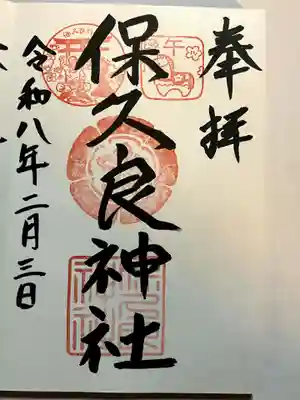 奉拝
保久良神社
令和八年二月三日
午